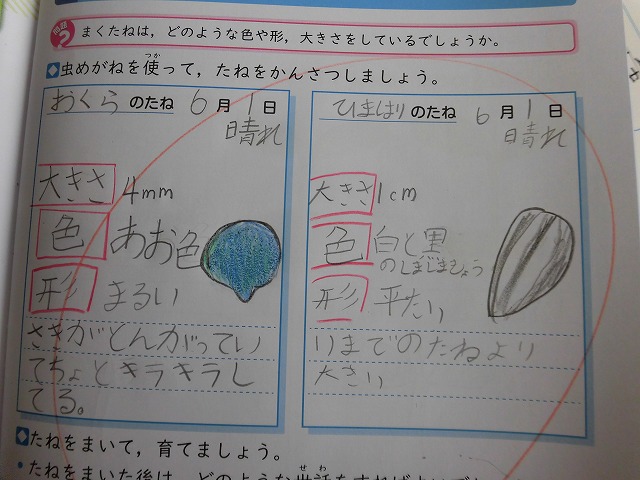 問題
？
まくたねは，どのような色や形，大きさをしているでしょうか。
虫めがねを使って，たねをかんさつしましょう。
つか
おくらのたね 6月1日
晴れ
大きさ 4mm
色 あお色
形 まるい
さきがとんがってい
てちょとキラキラし
てる。
ひまはりのたね 6月1日
晴れ
大きさ 1cm
色 白と黒
のしまじましょう
形 平たい
いまでのたねより
大きい
たねをまいて，育てましょう。
たねをまいた後は，どのような世話をすればよいで
せわ